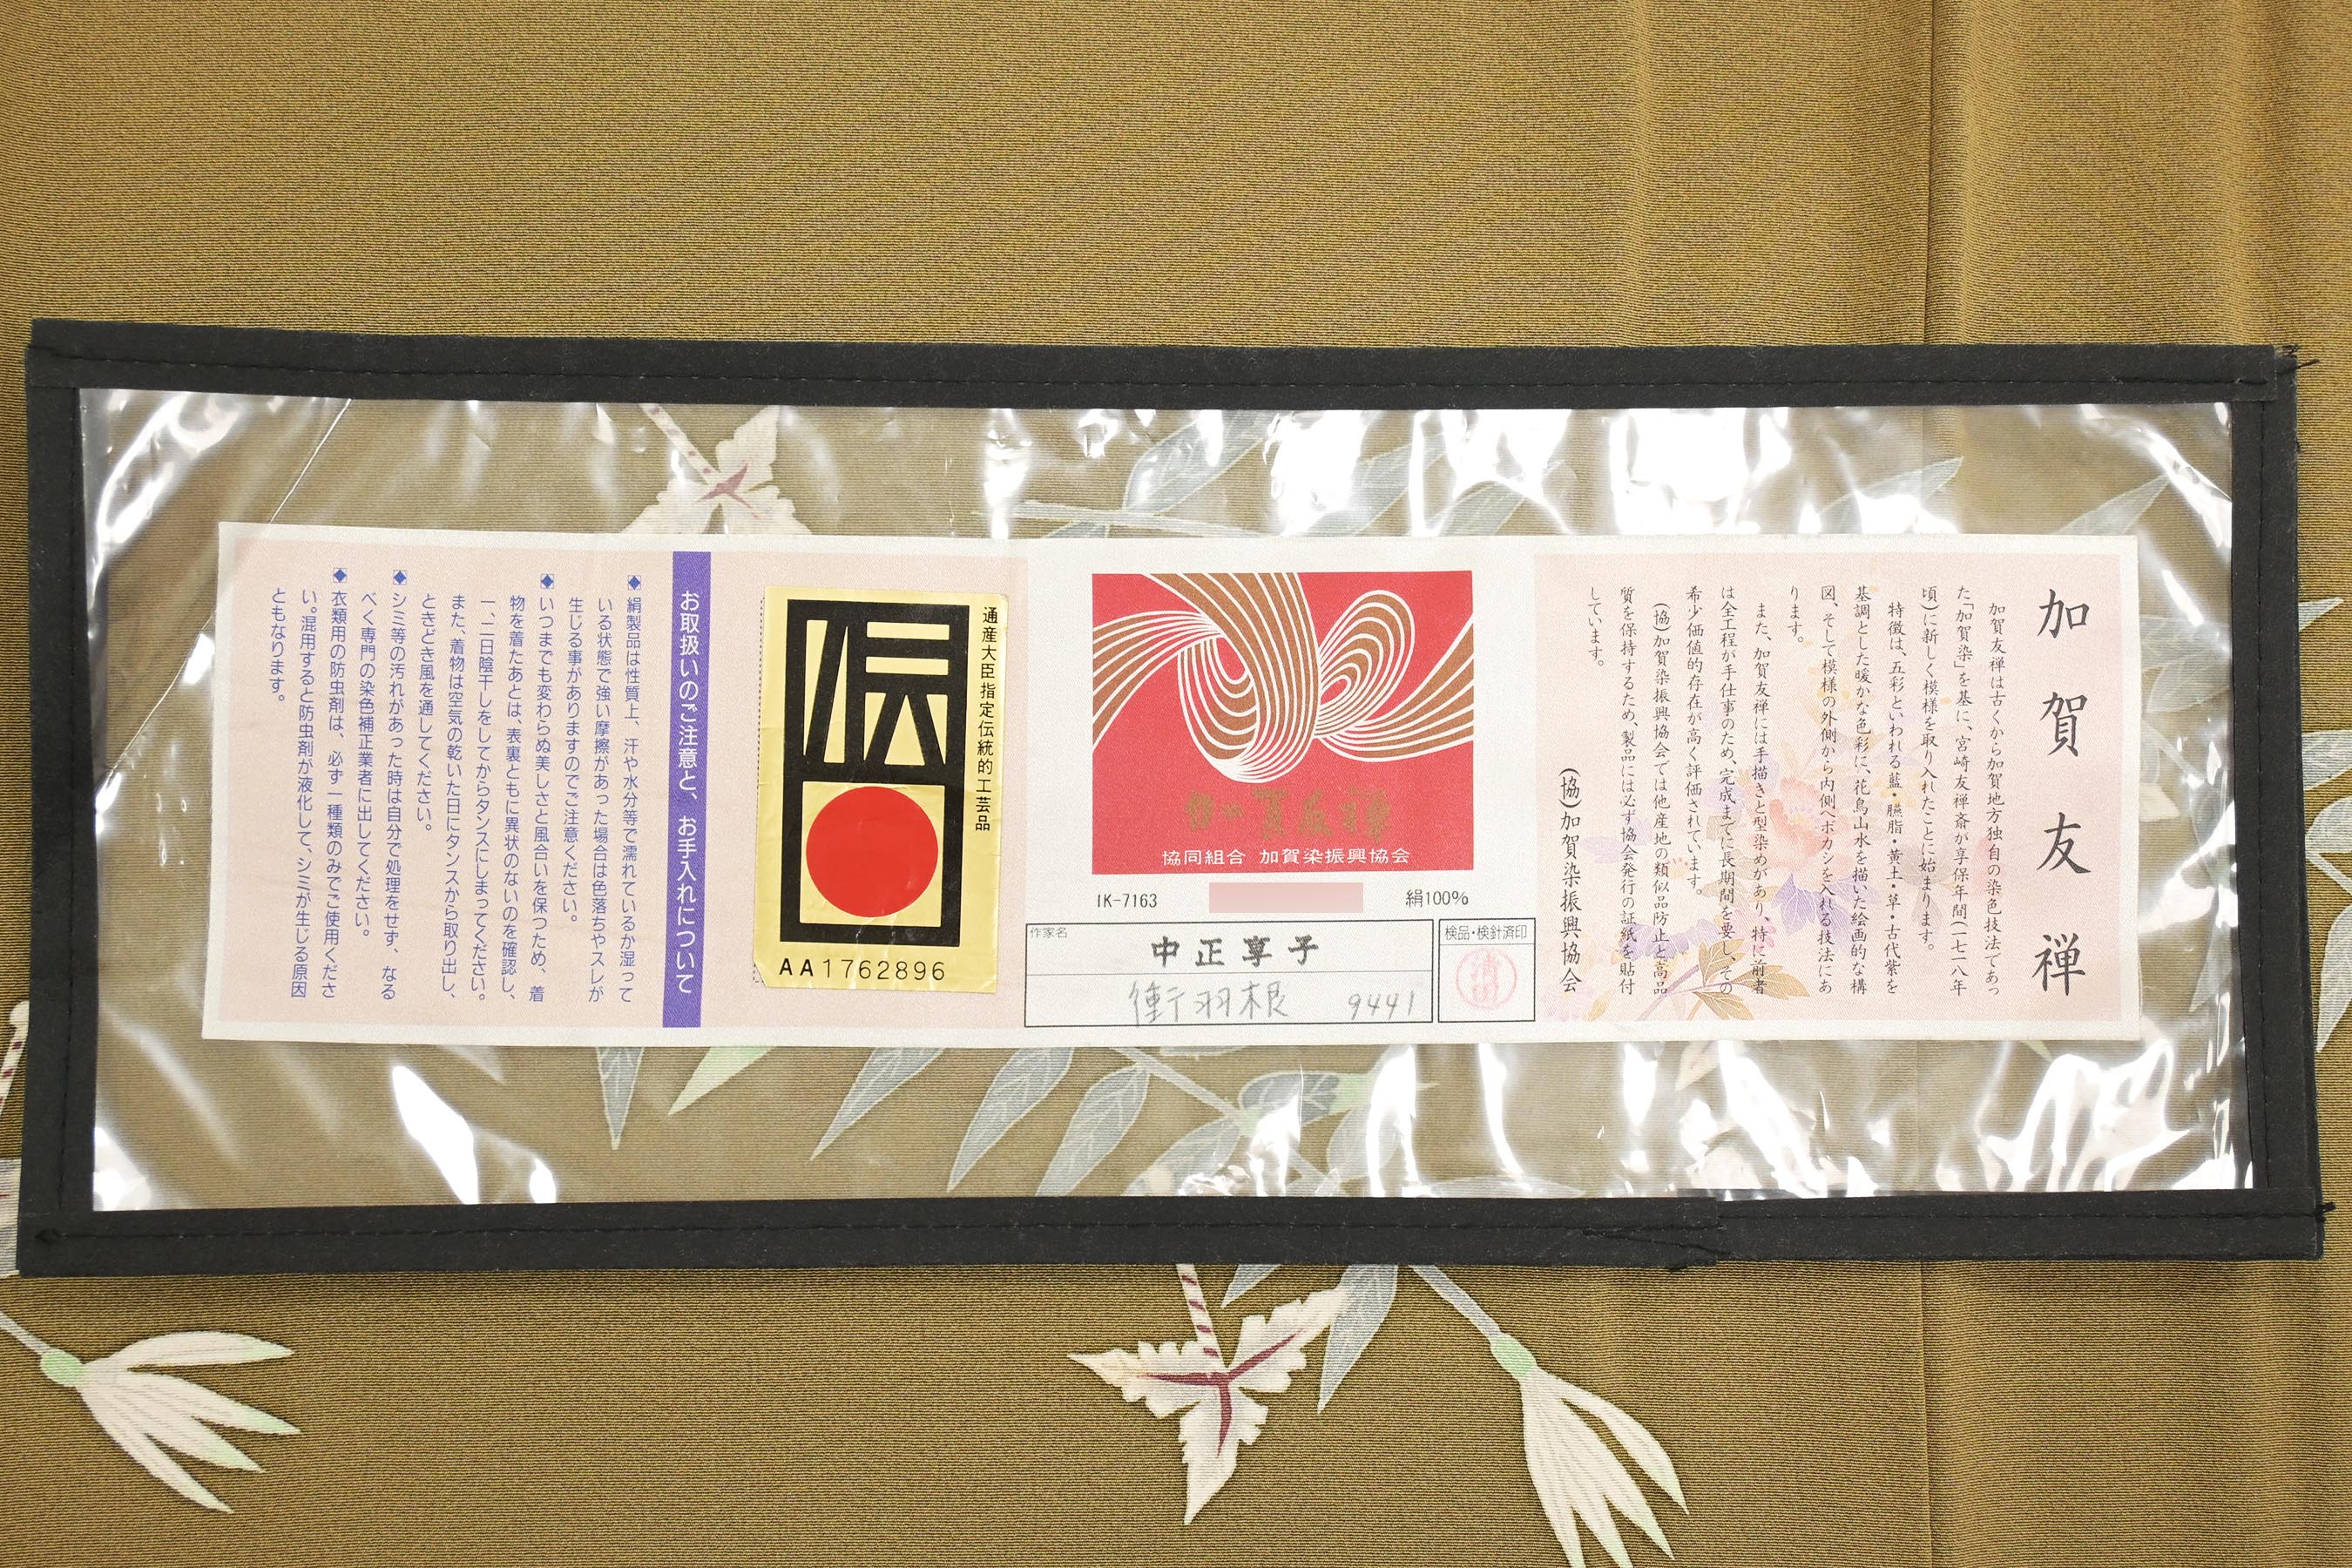 加賀友禅
加賀友禅は古くから加賀地方独自の染色技法であっ
た「加賀染」を基に、宮崎友禅斎が享保年間(一七一八年
頃)に新しく模様を取り入れたことに始まります。
特徴は、五彩といわれる藍・臙脂・黄土・草・古代紫を
基調とした暖かな色彩に、花鳥山水を描いた絵画的な構
図、そして模様の外側から内側へボカシを入れる技法にあ
ります。
また、加賀友禅には手描きと型染めがあり、特に前者
は全工程が手仕事のため、完成までに長期間を要し、その
希少価値的存在が高く評価されています。
(協)加賀染振興協会では他産地の類似品防止と高品
質を保持するため、製品には必ず協会発行の証紙を貼付
しています。
(協)加賀染振興協会
加賀友禅
協同組合 加賀染振興協会
IK-7163
絹100%
作家名
中正享子
衝羽根 9441
検品・検針済印
通産大臣指定伝統的工芸品
伝
AA1762896
お取扱いのご注意と、お手入れについて
◆絹製品は性質上、汗や水分等で濡れているか湿って
いる状態で強い摩擦があった場合は色落ちやスレが
生じる事がありますのでご注意ください。
◆いつまでも変わらぬ美しさと風合いを保つため、着
物を着たあとは、表裏ともに異状のないのを確認し、
一、二日陰干しをしてからタンスにしまってください。
また、着物は空気の乾いた日にタンスから取り出し、
ときどき風を通してください。
◆シミ等の汚れがあった時は自分で処理をせず、なる
べく専門の染色補正業者に出してください。
◆衣類用の防虫剤は、必ず一種類のみでご使用くださ
い。混用すると防虫剤が液化して、シミが生じる原因
ともなります。